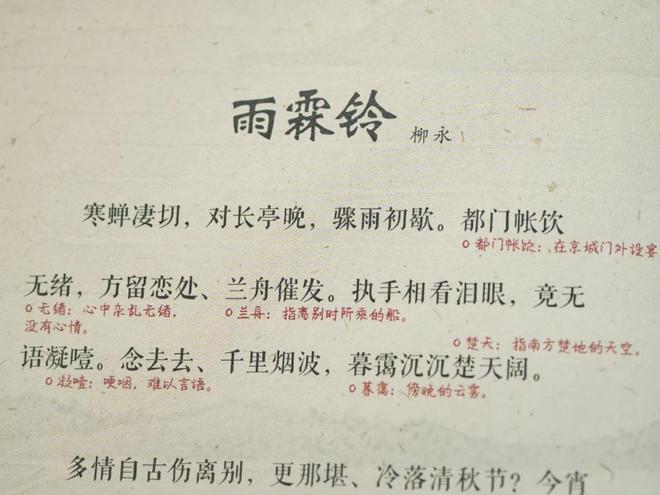 雨霖铃 柳永
寒蝉凄切，对长亭晚，骤雨初歇。都门帐饮
都门帐饮：在京城门外设宴
无绪，方留恋处、兰舟催发。执手相看泪眼，竟无
无绪：心中杂乱无绪，没有心情。
兰舟：指离别时所乘的船。
楚天：指南方楚地的天空。
语凝噎。念去去、千里烟波，暮霭沉沉楚天阔。
凝噎：哽咽，难以言语。
暮霭：傍晚的云雾。
多情自古伤离别，更那堪、冷落清秋节？今宵